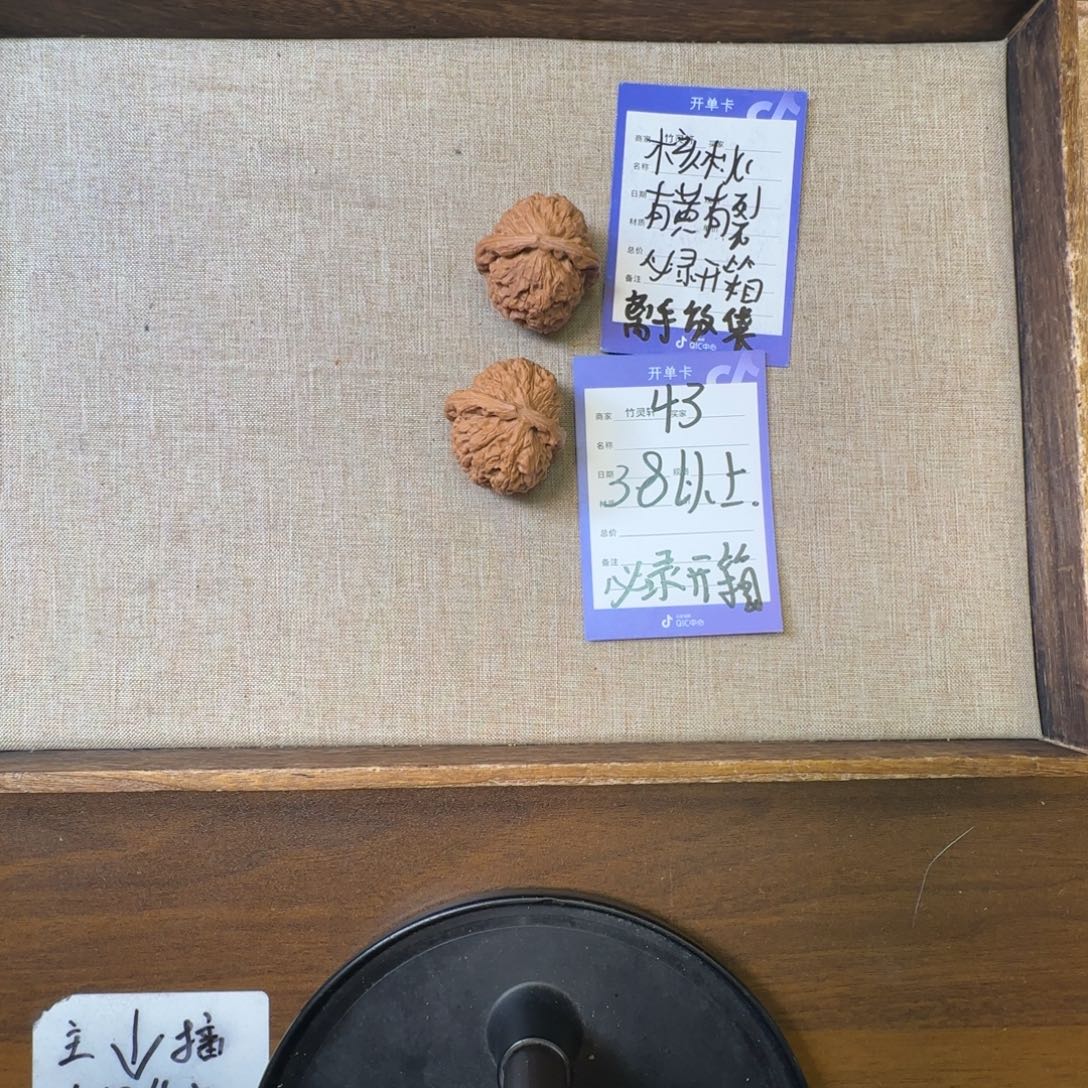 开单卡
商家 竹灵轩 买家
名称 核桃
日期 有黄有裂
材质
总价 必录开箱
备注
离手放袋
QIC中心
开单卡
商家 竹灵轩 买家 43
名称
日期 38以上.
材质
总价
备注 必录开箱
QIC中心
主↓播